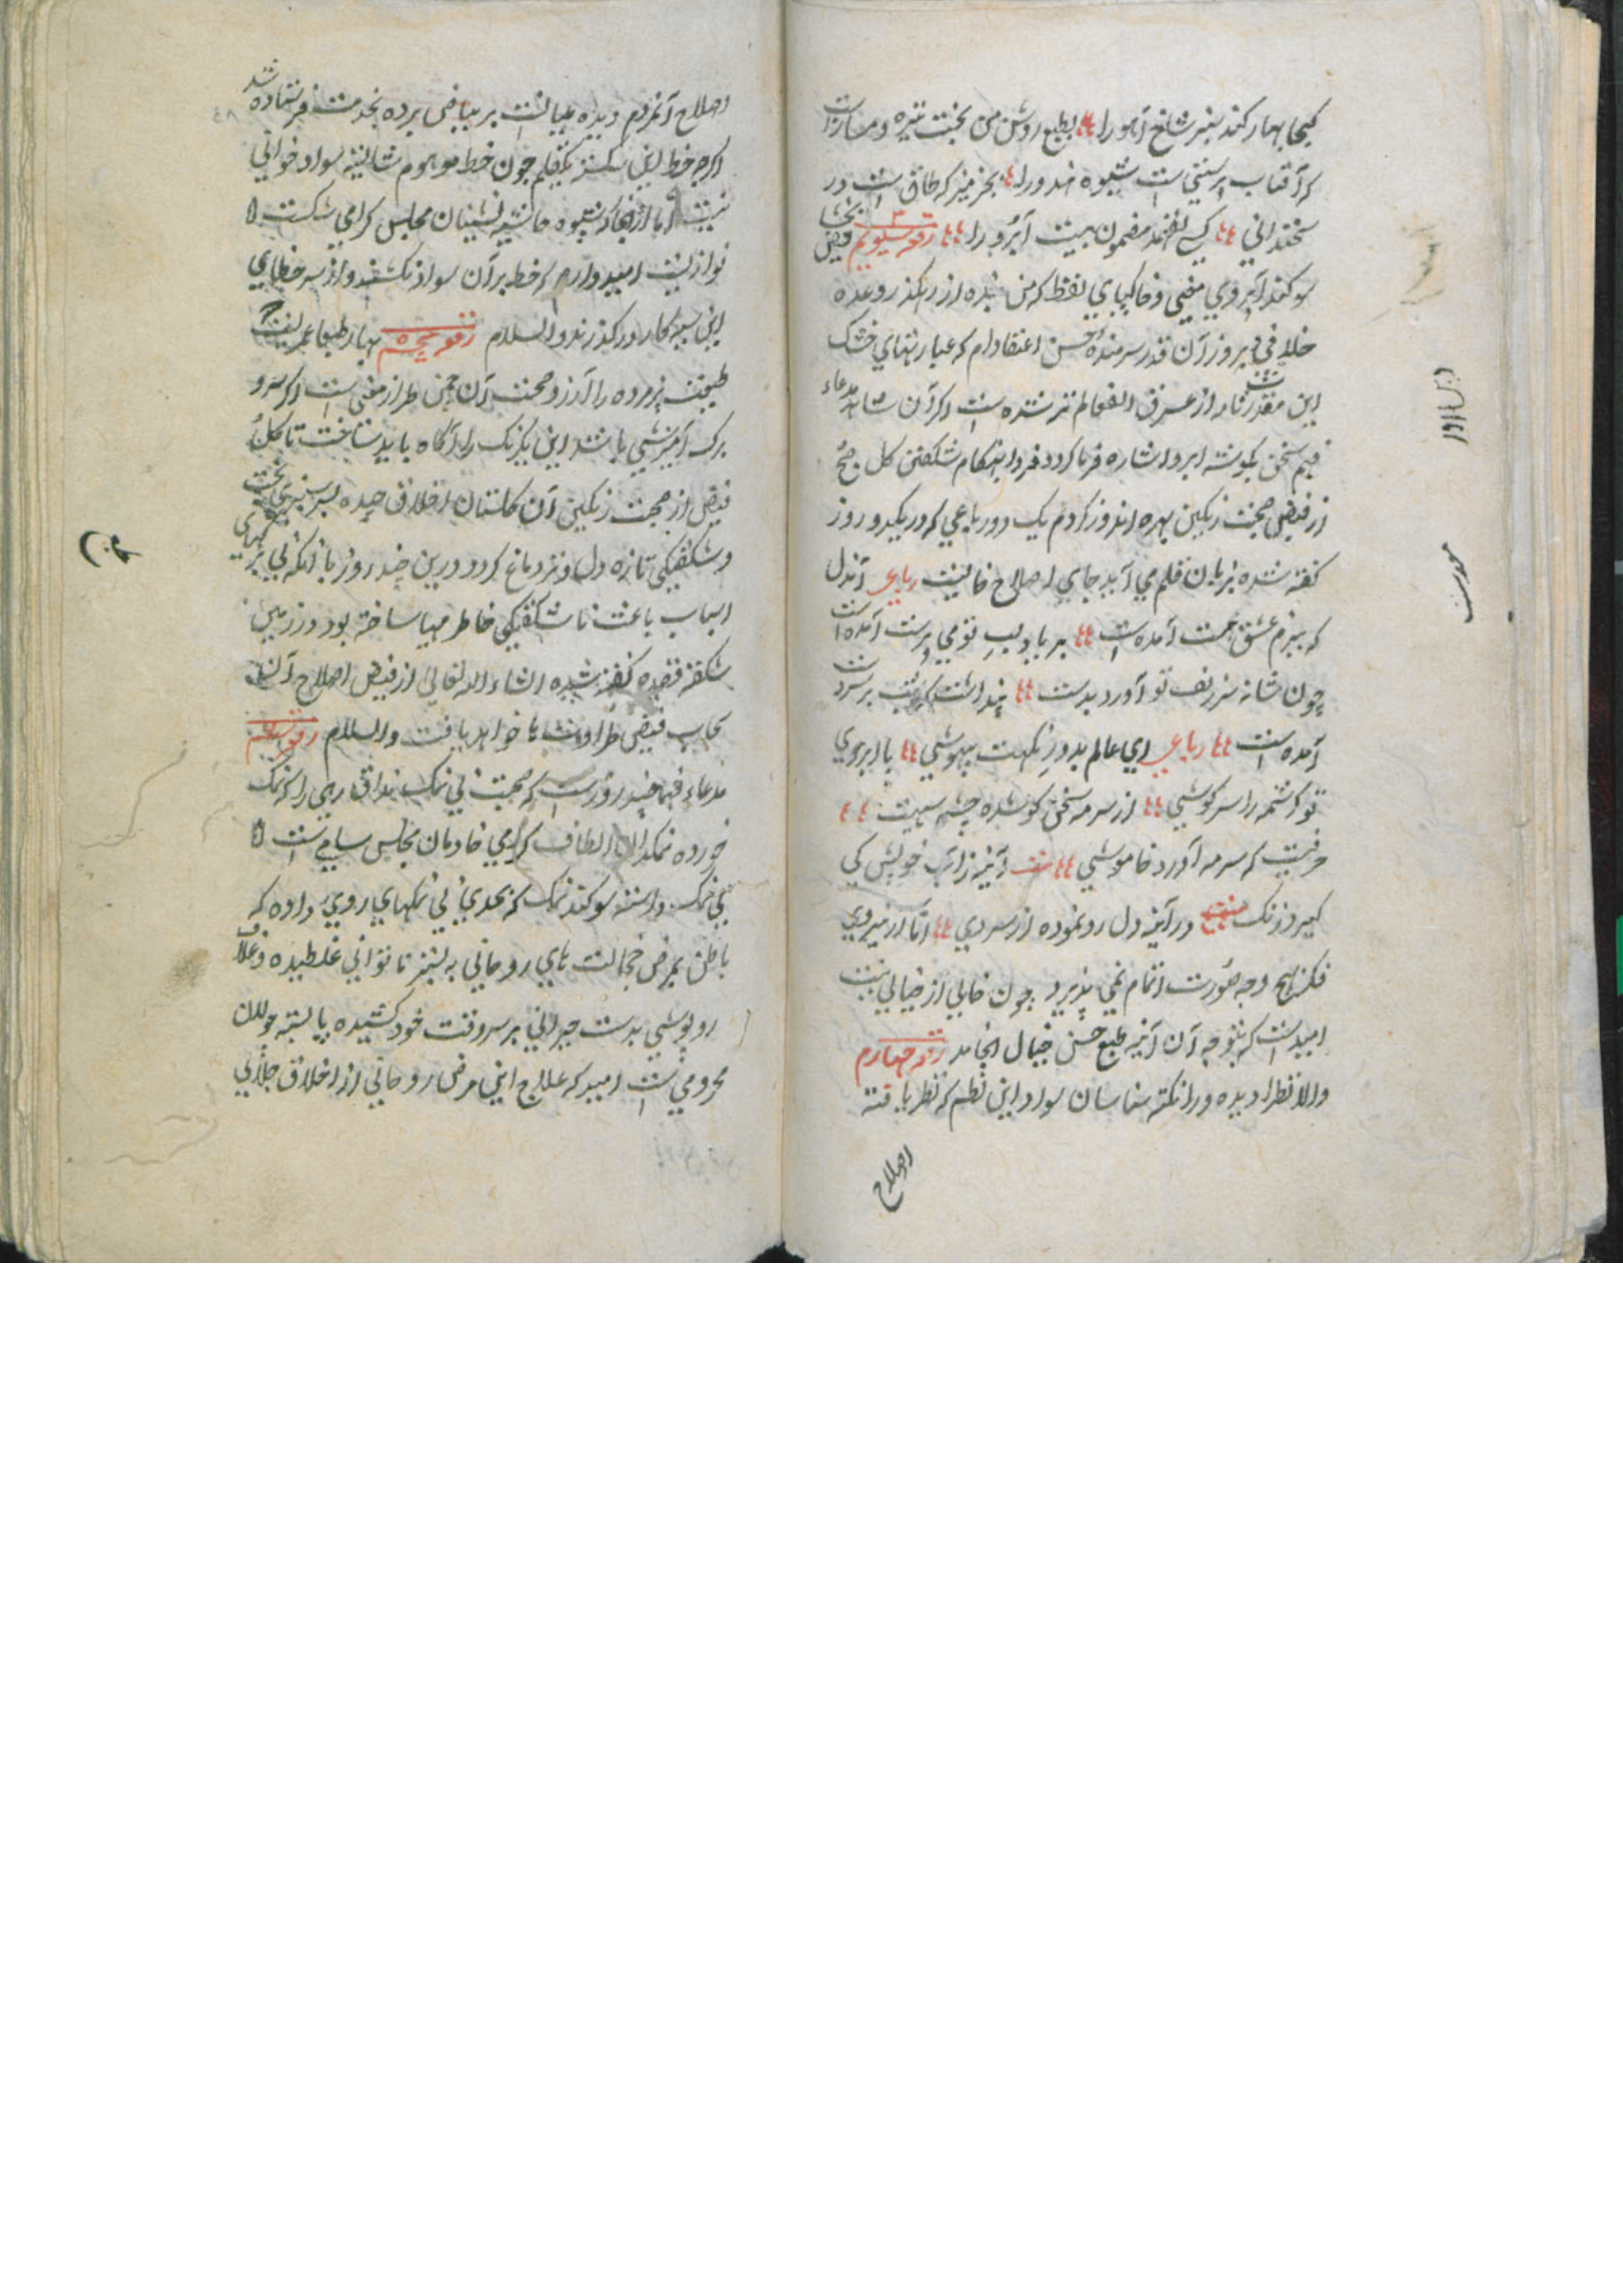 کجا بهار کند سبز شاخ آهو را بطبع روشن من بخت تیره دمساز است
که آفتاب پرستی است شیوه هندو را بجز منیر که طاق است در
سخندانی کسی نفهمد مضمون بیت ابرو را رقعه سیویم فیض بخشا
سوکند آبروی معنی و خاکپای لفظ که من بنده از رهکذر وعده
خلافی دیروز آن قدر سرمنده حسن اعتقادام که عبارتهای خشک
این مقدرتنامه از عرق انفعال تر شده است اکر آن شاهد مدعاء
فهم سخن بکوشه ابرو اشاره فرما کردد فردا هنکام شکفتن کل صبح
از فیض صحبت رنکین بهره اندوز کردم یک دو رباعی که در یکدو روز
کفته شده بزبان قلم می آید جای اصلاح خالیست رباعی آندل
که ببزم عشق مست آمده است بر یاد لب تو می پرست آمده است
چون شانه سر زلف تو آورد بدست پنداشت که شب بر سر دست
آمده است رباعی ای عالم بدور نکهت بیهوشی با ابروی
تو کرشمه را سرکوشی از سرمه سخن کو شده چشم سیهت
حرفیست که سرمه آورد خاموشی آئینه ز آب خویش کی
کیرد زنک در آینه دل رو نموده از سر دی امّا از نیروی
فکر بهیچ وجه صورت اتمام نمی پذیرد چون خالی از خیالی نیست
امید است که بتوجه آن آئینه طبع حسن خیال انجامد رقعه چهارم
والا نظرا دیده ورا نکته شناسان سواد این نظم که نظر یافته
اصلاح
اصلاح آنمردم دیده بیانست بر بیاض برده بخدمت فرستاده شد
اکرچه خط این شکسته یکقلم چون خط موهوم شایسته سواد خوانی
نیست اما ازانجا که شیوه حاشیه نشینان مجلس کرامی شکسته
نوازیست امیدوارم که خط بر آن سواد نکشند و از سر خطای
این سیه کار در کذرند والسلام رقعه پنجم بهار طبعا عمریست
طبیعت پژمرده را آرزو صحبت آن چمن طراز معنی است اکر سر و
برک آمیزشی باشد این یکرنک را آکاه باید ساخت تا کل
فیض از صحبت رنکین آن کلستان اخلاق چیده
و شکفتکی تازه دل و تر دماغ کردد درین چند روز با آنکه بی برکیهای
اسباب باعث ناشکفتکی خاطر مهیا ساخته بود در زمین
شکفته قصیده کفته شده انشاء الله تعالی از فیض اصلاح آن
سحاب فیض طراوتها خواهد یافت والسلام رقعه ششم
مدعاء فهما چند روز است که صحبت بی نمک بمذاق رهی را که نمک
خورده نمکدان الطاف کرامی خادمان مجلس سامی است
بی نمک داشته سوکند نمک که بحدی بی نمکهای روی داده که
باطن بمرض خجالت های روحانی به بستر ناتوانی غلطیده و غلاف
روپوشی بدست حیرانی بر سر وقت خود کشیده پا بسته جولان
محرومی است امید که علاج این مرض روحانی از اخلاق جلابی